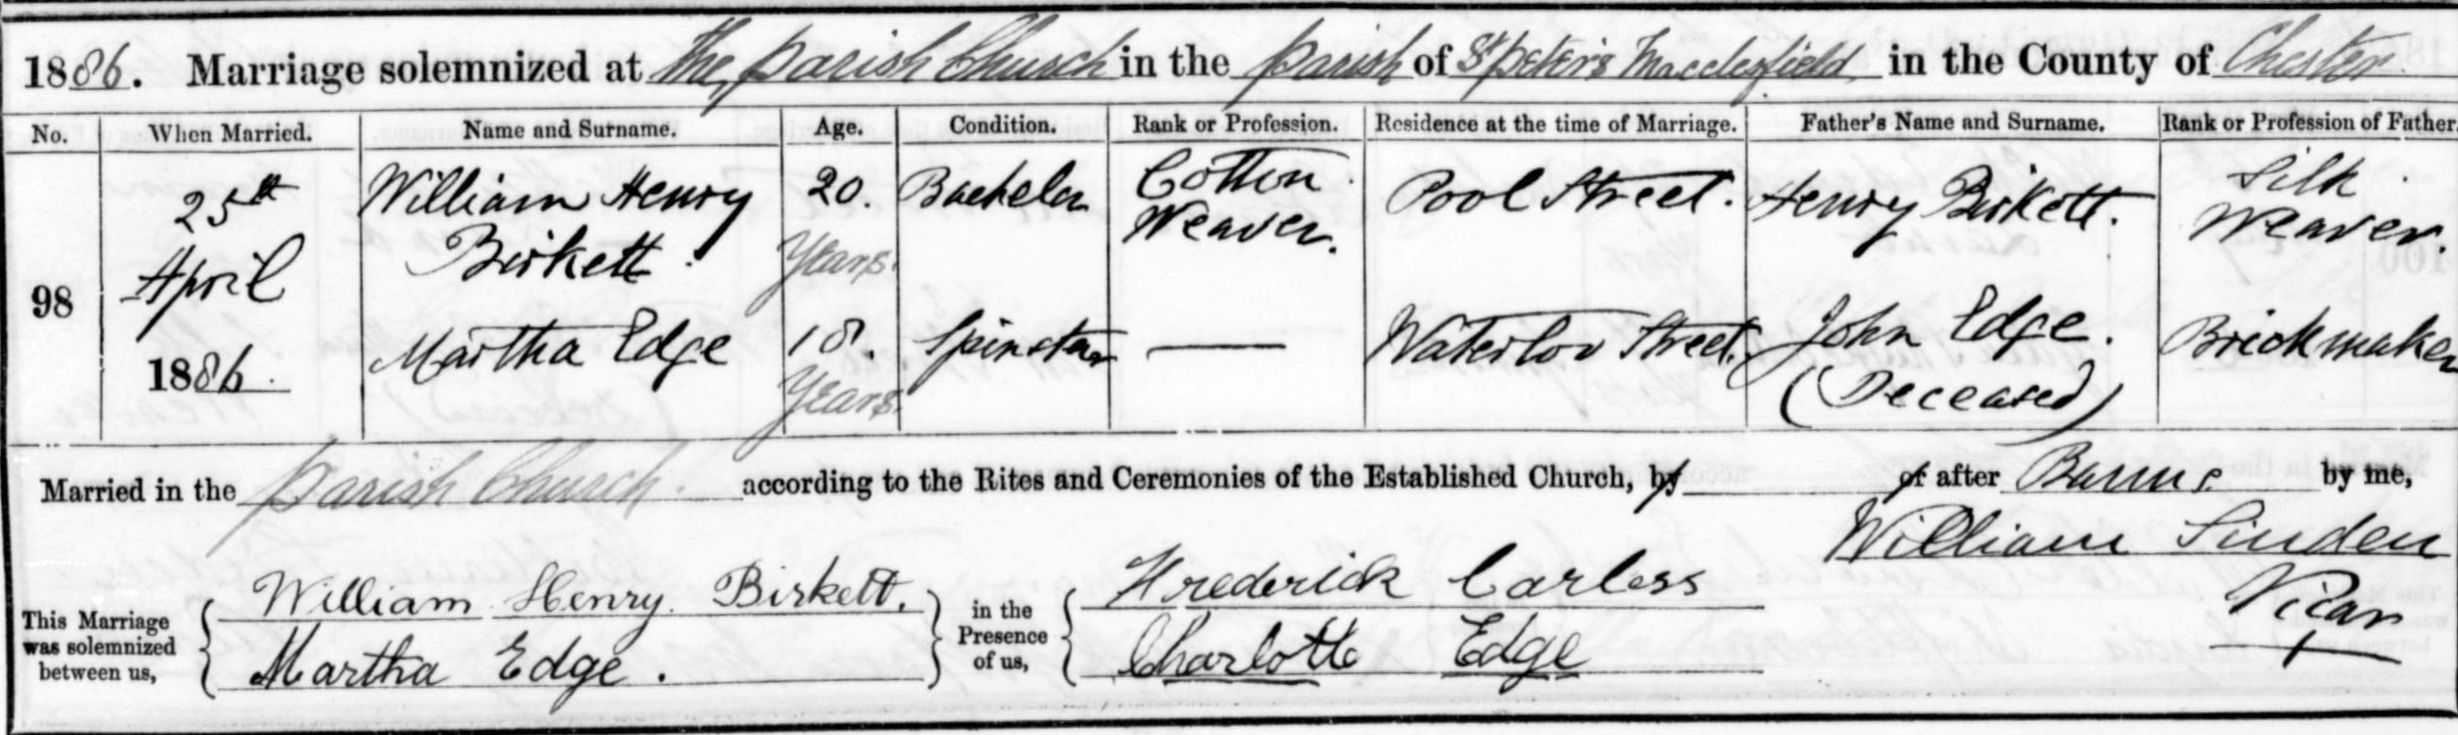 1886. Marriage solemnized at The Parish Church in the Parish of St Peter's Macclesfield in the County of Chester
No. When Married. Name and Surname. Age. Condition. Rank or Profession. Residence at the time of Marriage. Father's Name and Surname. Rank or Profession of Father.
98 25th April 1886. William Henry Birkett. 20. Years. Bachelor Cotton Weaver. Pool Street. Henry Birkett. Silk Weaver.
Martha Edge 18. Years. Spinster — Waterloo Street. John Edge. (Deceased) Brickmaker
Married in the Parish Church. according to the Rites and Ceremonies of the Established Church, by of after Banns by me,
William Sinden
Vicar
This Marriage was solemnized between us, William Henry Birkett. in the Presence of us, Frederick Carless
Martha Edge. Charlotte Edge